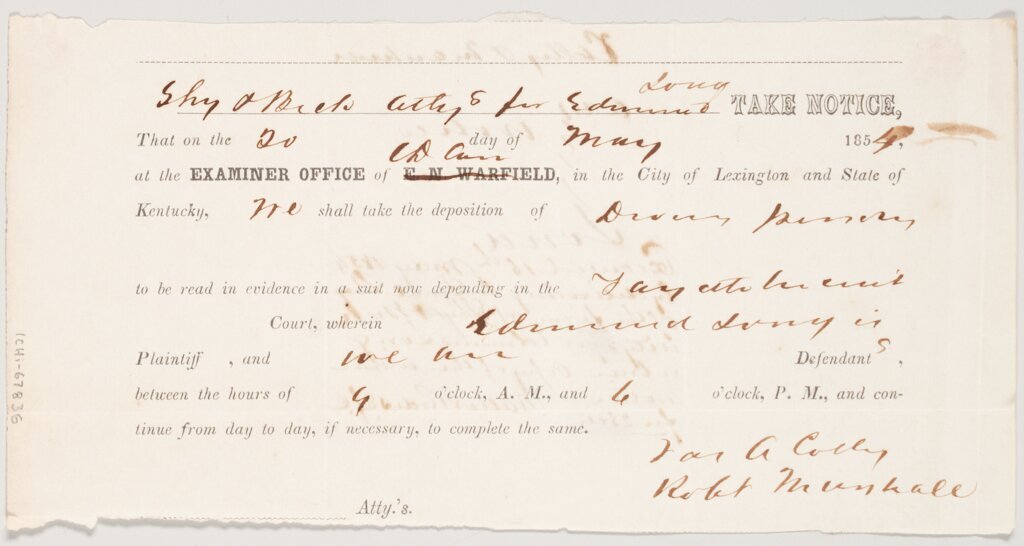 Long
Shy & Beck Attys for Edmund TAKE NOTICE,
That on the 20 day of May 1854,
CD Carr
at the EXAMINER OFFICE of E. N. WARFIELD, in the City of Lexington and State of
Kentucky, We shall take the deposition of Divers persons
to be read in evidence in a suit now depending in the Fayette Circuit
Court, wherein Edmund Long is
Plaintiff , and we are Defendants,
between the hours of 9 o'clock, A. M., and 6 o'clock, P. M., and con-
tinue from day to day, if necessary, to complete the same.
Jas A
Robt Marshall
Atty.'s.
ICHi-67836